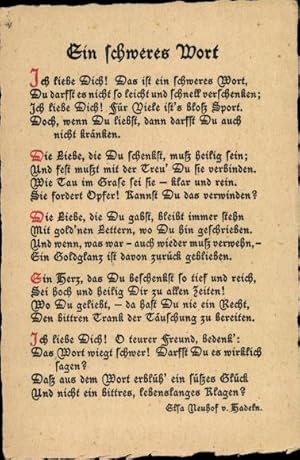 Ein schweres Wort
Ich liebe Dich! Das ist ein schweres Wort,
Du darfst es nicht so leicht und schnell verschenken;
Ich liebe Dich! Für Viele ist's bloß Sport.
Doch, wenn Du liebst, dann darfst Du auch
nicht kränken.
Die Liebe, die Du schenkst, muß heilig sein;
Und fest mußt mit der Treu' Du sie verbinden.
Wie Tau im Grase sei sie – klar und rein.
Sie fordert Opfer! Kannst Du das verwinden?
Die Liebe, die Du gabst, bleibt immer stehn
Mit gold'nen Lettern, wo Du hin geschrieben.
Und wenn, was war – auch wieder muß verwehn,–
Ein Goldglanz ist davon zurück geblieben.
Ein Herz, das Du beschenkst so tief und reich,
Sei hoch und heilig Dir zu allen Zeiten!
Wo Du geliebt, – da hast Du nie ein Recht,
Den bittren Trank der Täuschung zu bereiten.
Ich liebe Dich! O teurer Freund, bedenk':
Das Wort wiegt schwer! Darfst Du es wirklich
sagen?
Daß aus dem Wort erblüh' ein süßes Glück
Und nicht ein bittres, lebenslanges Klagen?
Elsa Neuhof v. Hadeln.